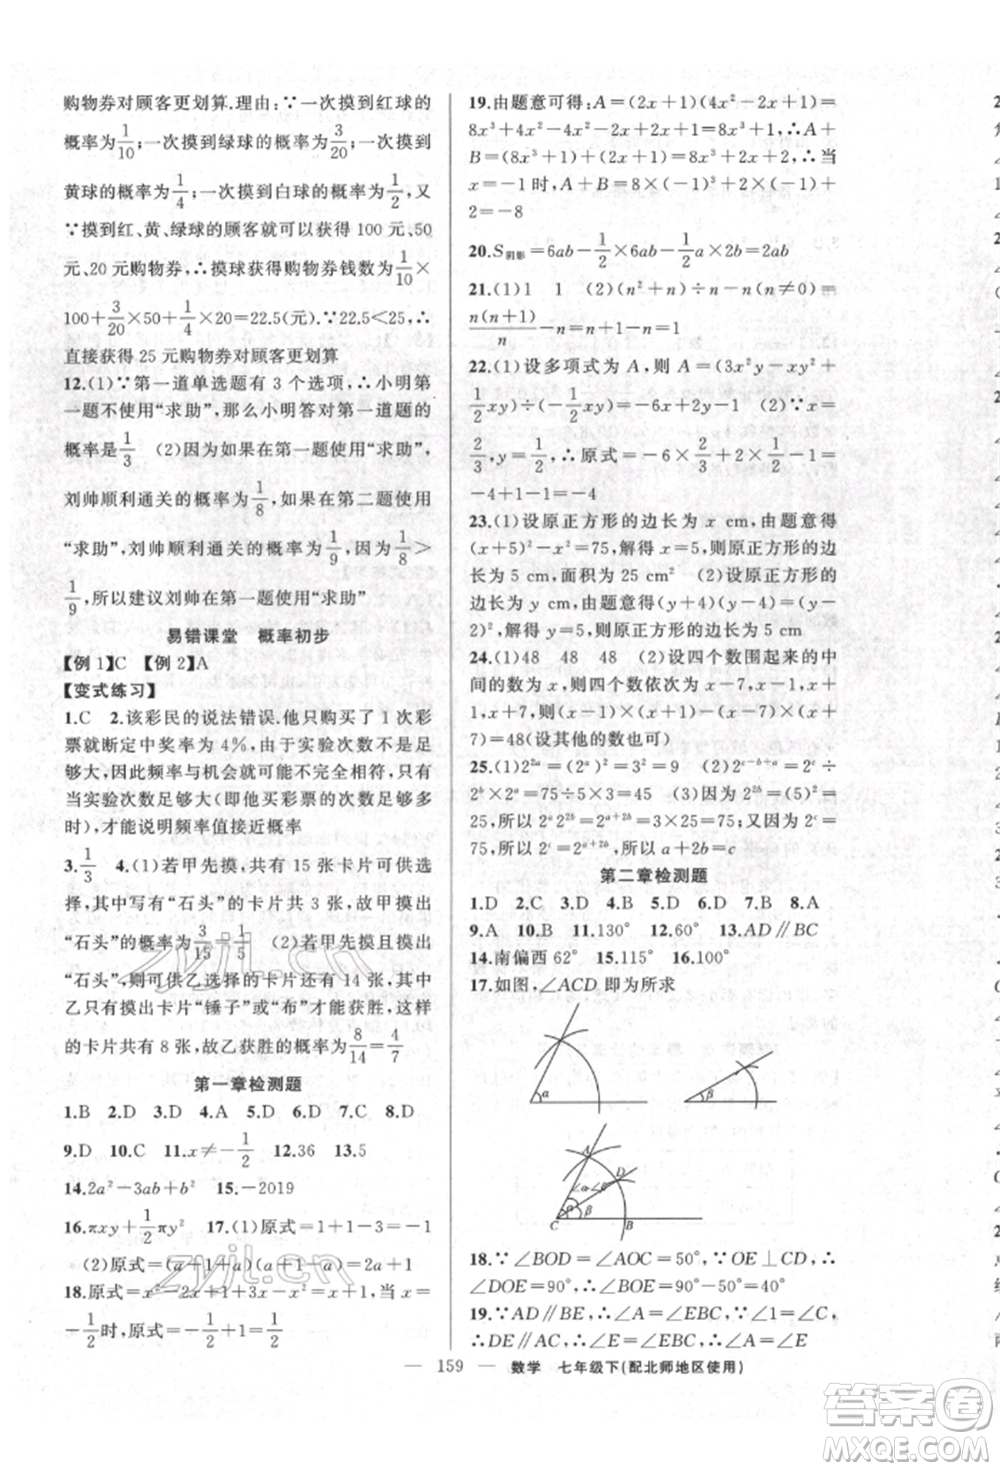 购物券对顾客更划算.理由:∵一次摸到红球的
概率为1/10;一次摸到绿球的概率为3/20;一次摸到
黄球的概率为1/4;一次摸到白球的概率为1/2,又
∵摸到红、黄、绿球的顾客就可以获得 100 元、50
元、20 元购物券,∴摸球获得购物券钱数为1/10×
100+3/20×50+1/4×20=22.5(元).∵22.5<25,∴
直接获得 25 元购物券对顾客更划算
12.(1)∵第一道单选题有 3 个选项,∴小明第
一题不使用“求助”,那么小明答对第一道题的
概率是1/3 (2)因为如果在第一题使用“求助”,
刘帅顺利通关的概率为1/8,如果在第二题使用
“求助”,刘帅顺利通关的概率为1/9,因为1/8>
1/9,所以建议刘帅在第一题使用“求助”
易错课堂 概率初步
【例 1】C 【例 2】A
【变式练习】
1.C 2.该彩民的说法错误.他只购买了 1 次彩
票就断定中奖率为 4%,由于实验次数不是足
够大,因此频率与机会就可能不完全相符,只有
当实验次数足够大(即他买彩票的次数足够多
时),才能说明频率值接近概率
3.1/3 4.(1)若甲先摸,共有 15 张卡片可供选
择,其中写有“石头”的卡片共 3 张,故甲摸出
“石头”的概率为3/15=1/5 (2)若甲先摸且摸出
“石头”,则可供乙选择的卡片还有 14 张,其中
乙只有摸出卡片“锤子”或“布”才能获胜,这样
的卡片共 8 张,故乙获胜的概率为8/14=4/7
第一章检测题
1.B 2.D 3.D 4.A 5.D 6.D 7.C 8.D
9.D 10.C 11.x≠-1/2 12.36 13.5
14.2a²-3ab+b² 15.-2019
16.πxy+1/2πy² 17.(1)原式=1+1-3=-1
(2)原式=(a+1+a)(a+1-a)=1+2a
18.原式=x²-2x+1+3x-x²=1+x,当 x=
-1/2时,原式=-1/2+1=1/2
19.由题意可得:A=(2x+1)(4x²-2x+1)=
8x³+4x²-4x²-2x+2x+1=8x³+1,∴A+
B=(8x³+1)+(-1-2x²)=8x³-2x²,∴当
x=-1 时,A+B=(8x³-2x²)=8×(-1)³-2
=-8
20.S阴影=6ab-1/2×6ab-1/2a×2b=2ab
21.(1)1 1 (2)(n²+n)÷n-n(n≠0)=
n(n+1)/n-n=n+1-n=1
22.(1)设多项式为 A,A=(3x²y-xy²+
1/2xy)÷(-1/2xy)=-6x+2y-1 (2)∵x=
2/3,y=1/2,∴原式=-6×2/3+2×1/2-1=
-4+1-1=-4
23.(1)设原正方形的边长为 x cm,由题意得
(x+5)²-x²=75,解得:x=5.则原正方形的边
长为 5 cm,面积为 25 cm² (2)设原正方形的
边长为 y cm,由题意得:(y+3)(y-2)=y²,
24.(1)48 48 48 (2)设四个数围起来的中
间的数为 x,则四个数依次为 x-7,x-1,x+1,
x+7,则(x+1)(x-1)-(x+7)×(x-7)=48(设其他的数也可)
25.(1)2²ᵃ=(2ᵃ)²=3²=9 (2)
第二章检测题
1.D 2.C 3.D 4.B 5.D 6.D 7.B 8.A
9.A 10.B 11.130° 12.60° 13.AD∥BC
14.南偏西 62° 15.115° 16.100°
17.如图,∠ACD 即为所求
α
β
A D
C B β
18.∵∠BOD=∠AOC=50°,∵OE⊥CD,∴
∠DOE=90°,∴∠BOE=90°-50°=40°
19.∵AD∥BE,∴∠A=∠EBC,∵∠1=∠C,
∴DE∥AC,∴∠E=∠EBC,∴∠A=∠E
— 159 — 数学 七年级下(配北师地区使用)
zyjl.cn
答案圈
MXQE.COM